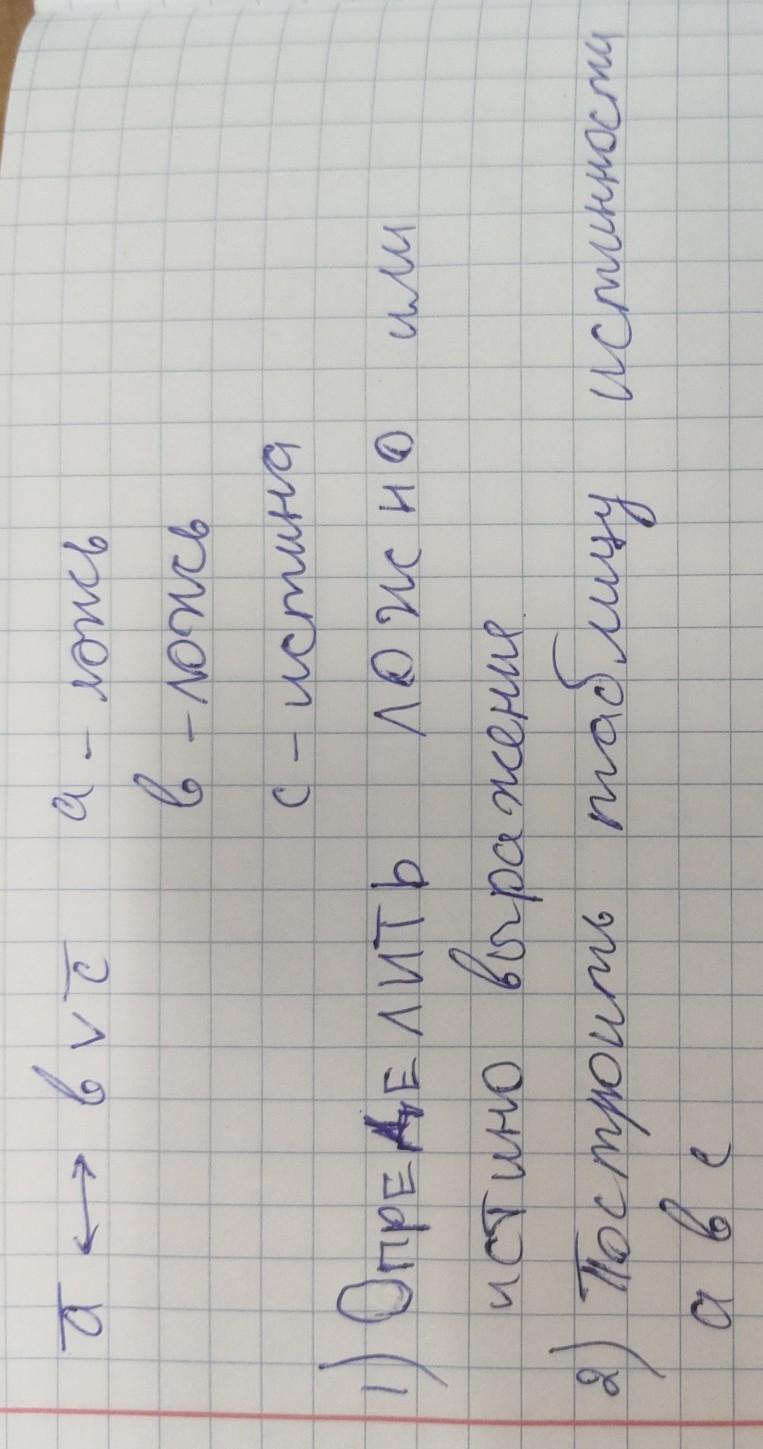 a̅ ↔ в ∨ c̅ а – ложь
в – ложь
с – истина
1) ОПРЕДЕЛИТЬ ЛОЖНО или
истино выражение
2) Построить таблицу истинности
а в с